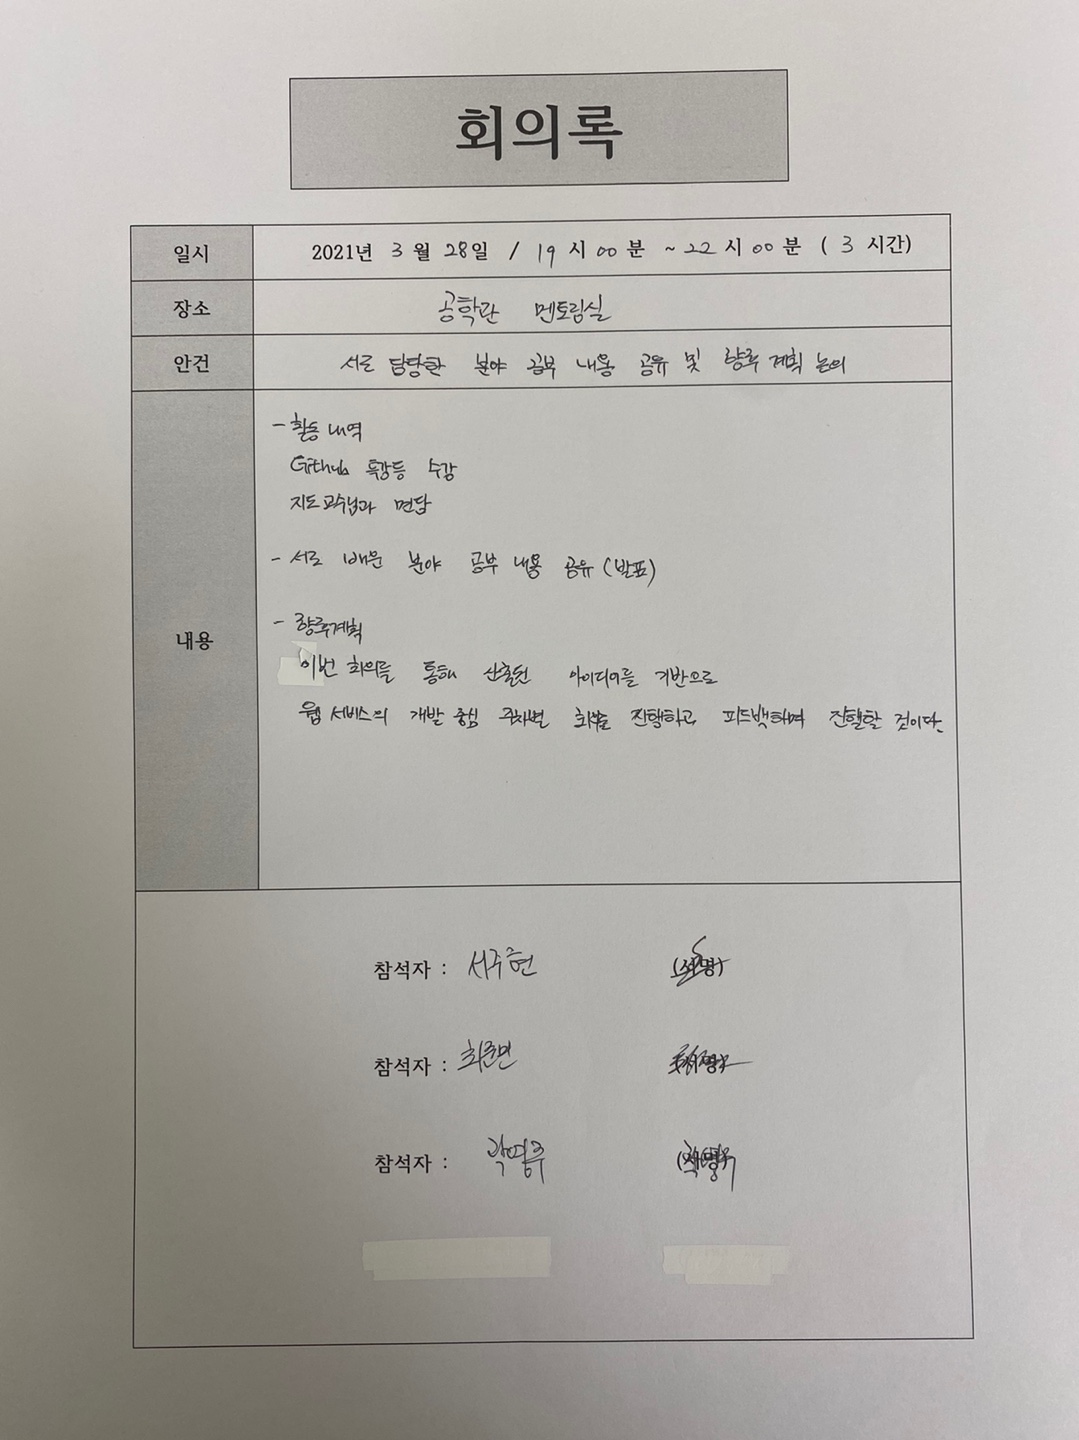 회의록
일시 2021년 3월 28일 / 19시 00분 ~ 22시 00분 ( 3 시간)
장소 공학관 멘토링실
안건 서로 담당한 분야 공부 내용 공유 및 향후 계획 논의
내용
- 활동 내역
Github 특강등 수강
지도교수님과 면담
- 서로 배운 분야 공부 내용 공유 (발표)
- 향후계획
이번 회의를 통해 산출된 아이디어를 기반으로
웹 서비스의 개발 중심 진행하고 피드백하며 진행할 것이다.
참석자 : 서주현 (서명)
참석자 : 최준민
참석자 :